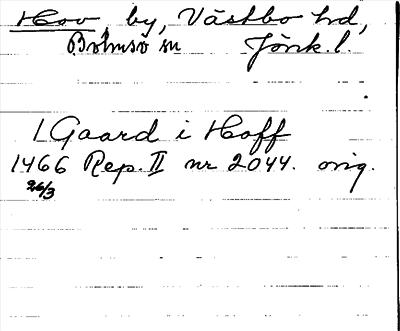 Hov, by, Västbo hd,
Bolmsö sn Jönk. l.
1 Gaard i Hoff
1466 Rep. II nr 2044. orig.
26/3